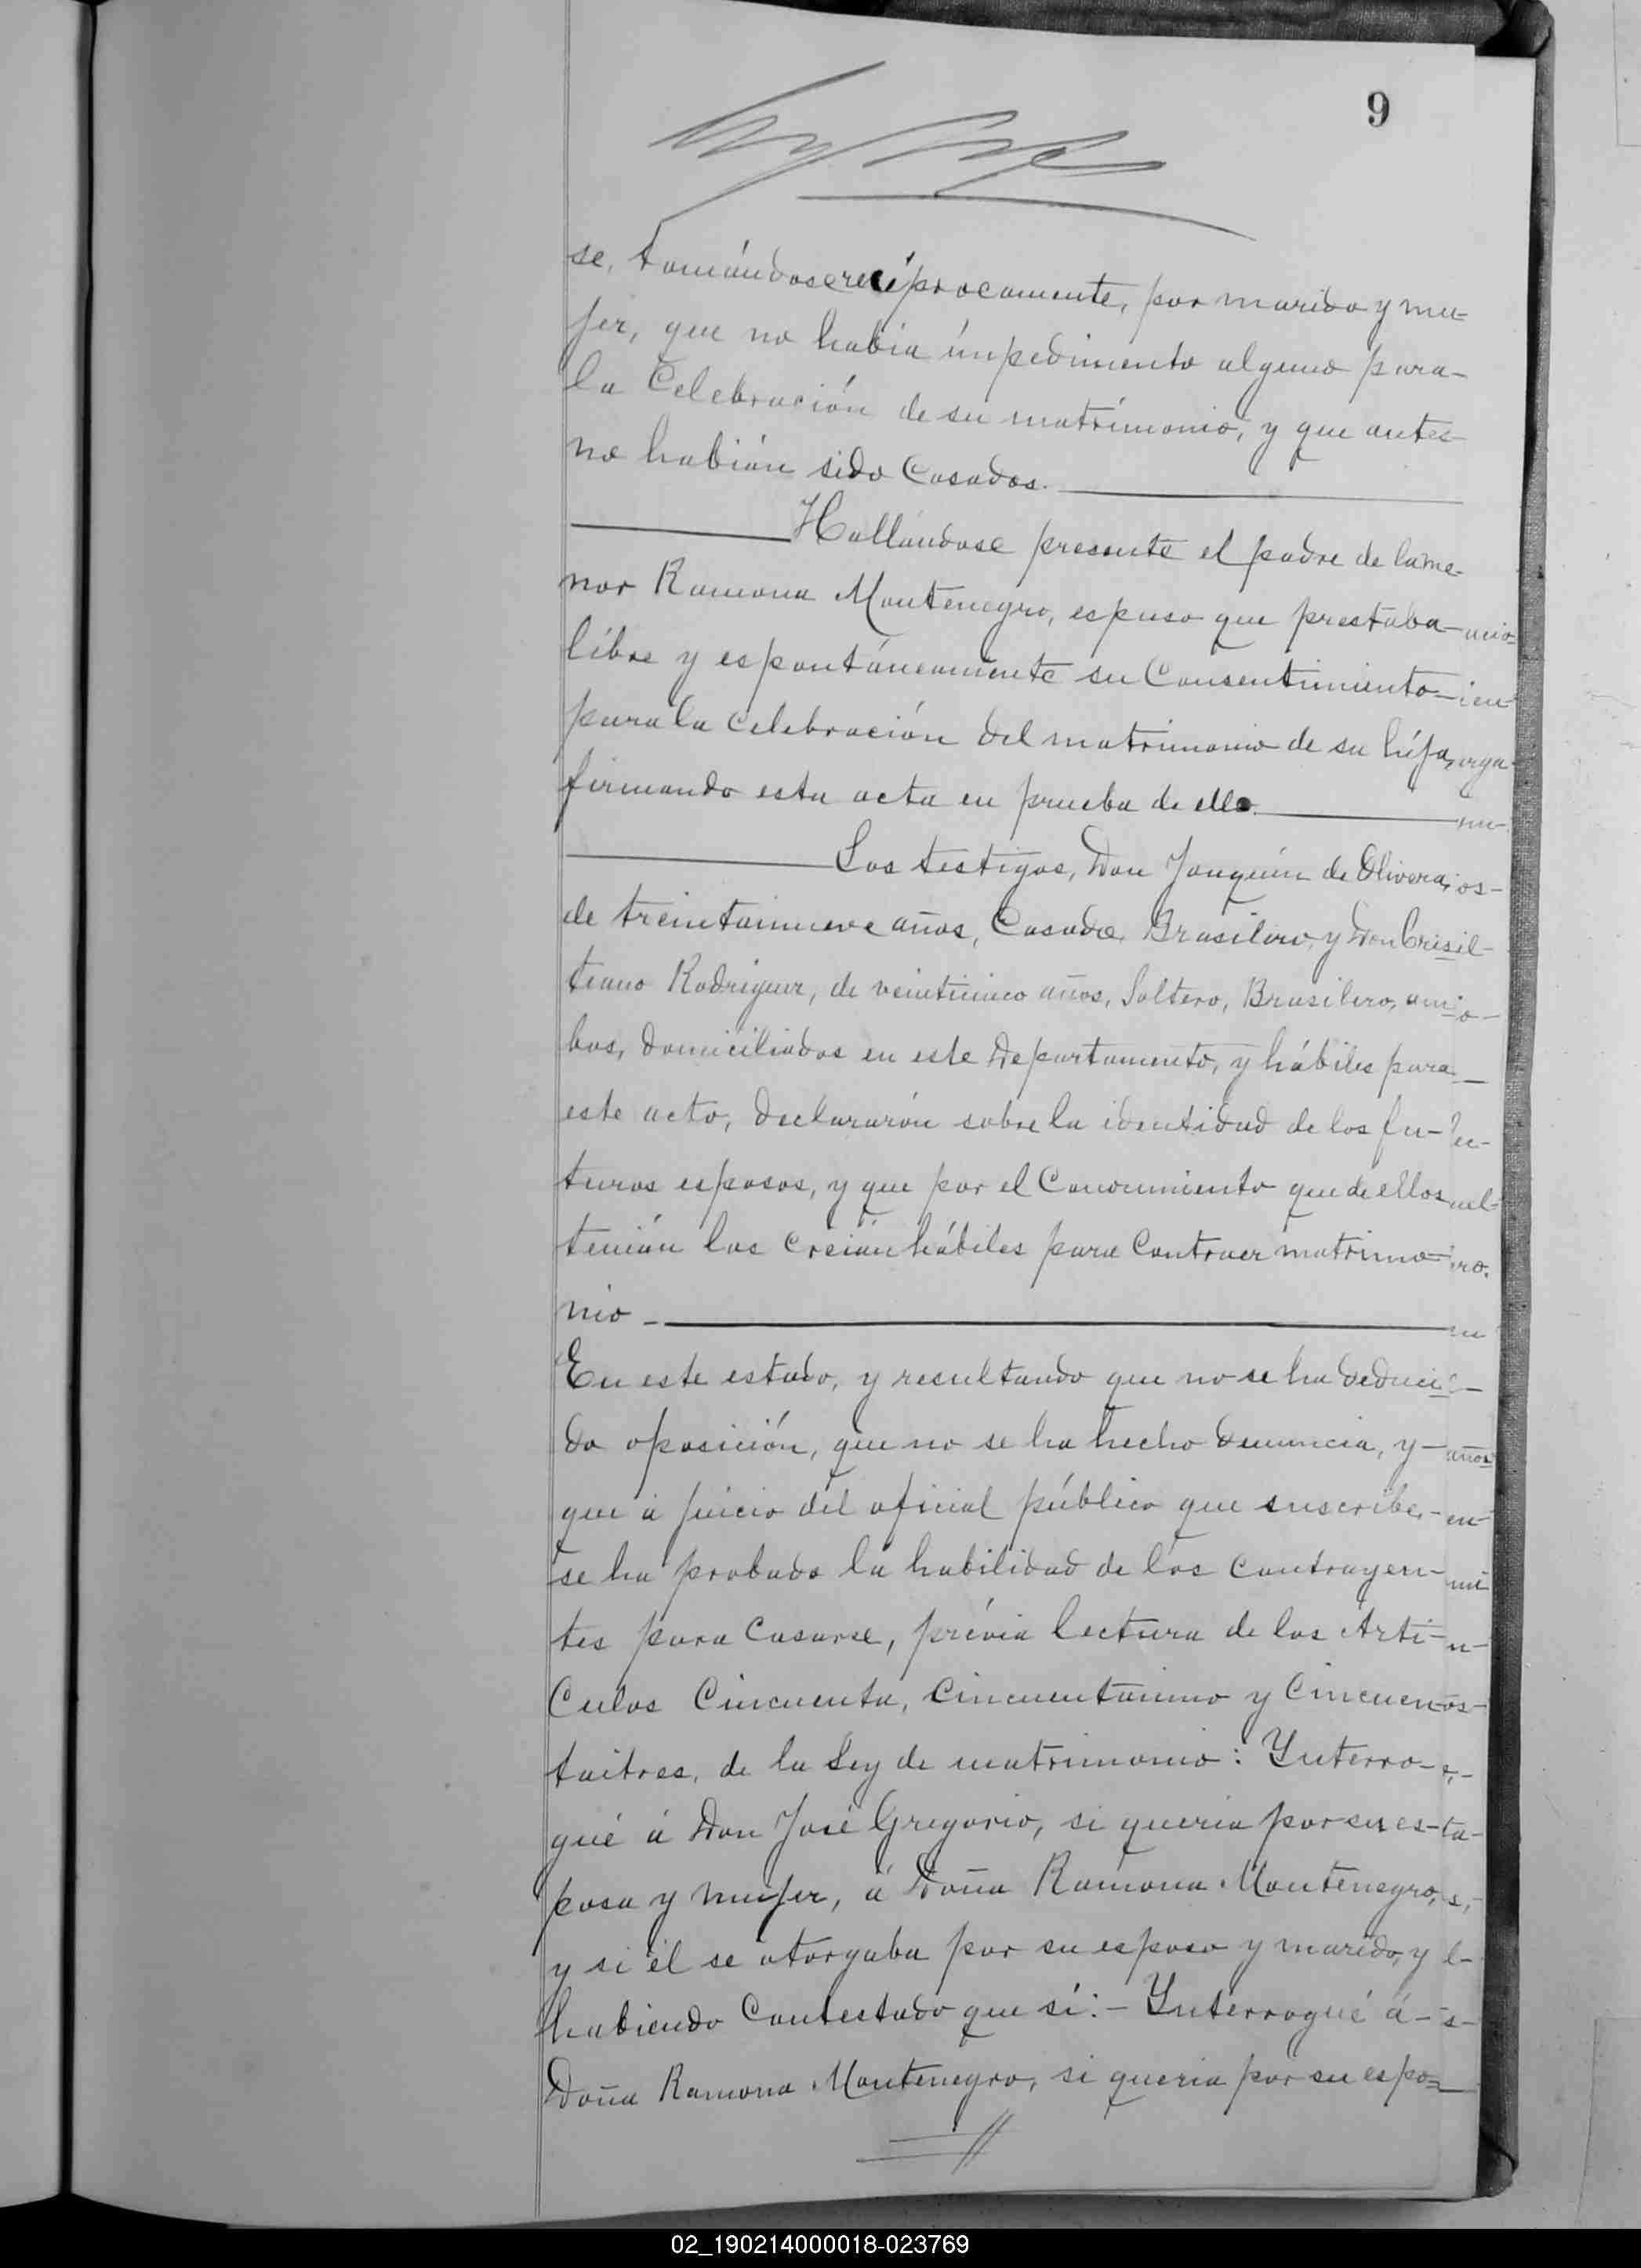 9
se, tomándose recíprocamente, por marido y mu-
jer, que no había ímpedimento alguno para-
la Celebración de su matrímonio, y que antes
no habían sido Casados.
Hallandose presente el padre de lame-
nor Ramona Montenegro, espuso que prestaba-
libre y espontáneamente su Consentimiento-
para la celebración del matrimonio de su híja,
firmando esta acta en prueba de ello.
Los testigos, Don Joaquín de Olivera,
de treintainueve años, Casado, Brasilero, y Don Cris
teano Rodriguez, de veinticinco años, Soltero, Brasilero, am-
bos, domiciliados en este Departamento, y hábiles para
este acto, declararón sobre la identidad de los fu-
turos esposos, y que por el Conocimiento que de ellos
tenían los creían hábiles para Contraer matrimo-
nio -
En este estado, y resultando que no se ha deduci-
do oposición, que no se ha hecho denuncia, y-
que á juicio del oficial público que suscribe,-
se ha probado la habilidad de los contrayen-
tes para Casarse, prévia lectura de los Artí-
Culos Cincuenta, Cincuentaiuno y Cincuen-
taitres, de la Ley de matrimonio: Ynterro-
gué á Don José Gregorio, si queria por su es-
posa y mujer, á Doña Ramona Montenegro,
y si él se otorgaba por su esposo y marido, y
habiendo Contestado que sí:- Ynterrogué á-
Doña Ramona Montenegro, si queria por su espo-
02_190214000018-023769